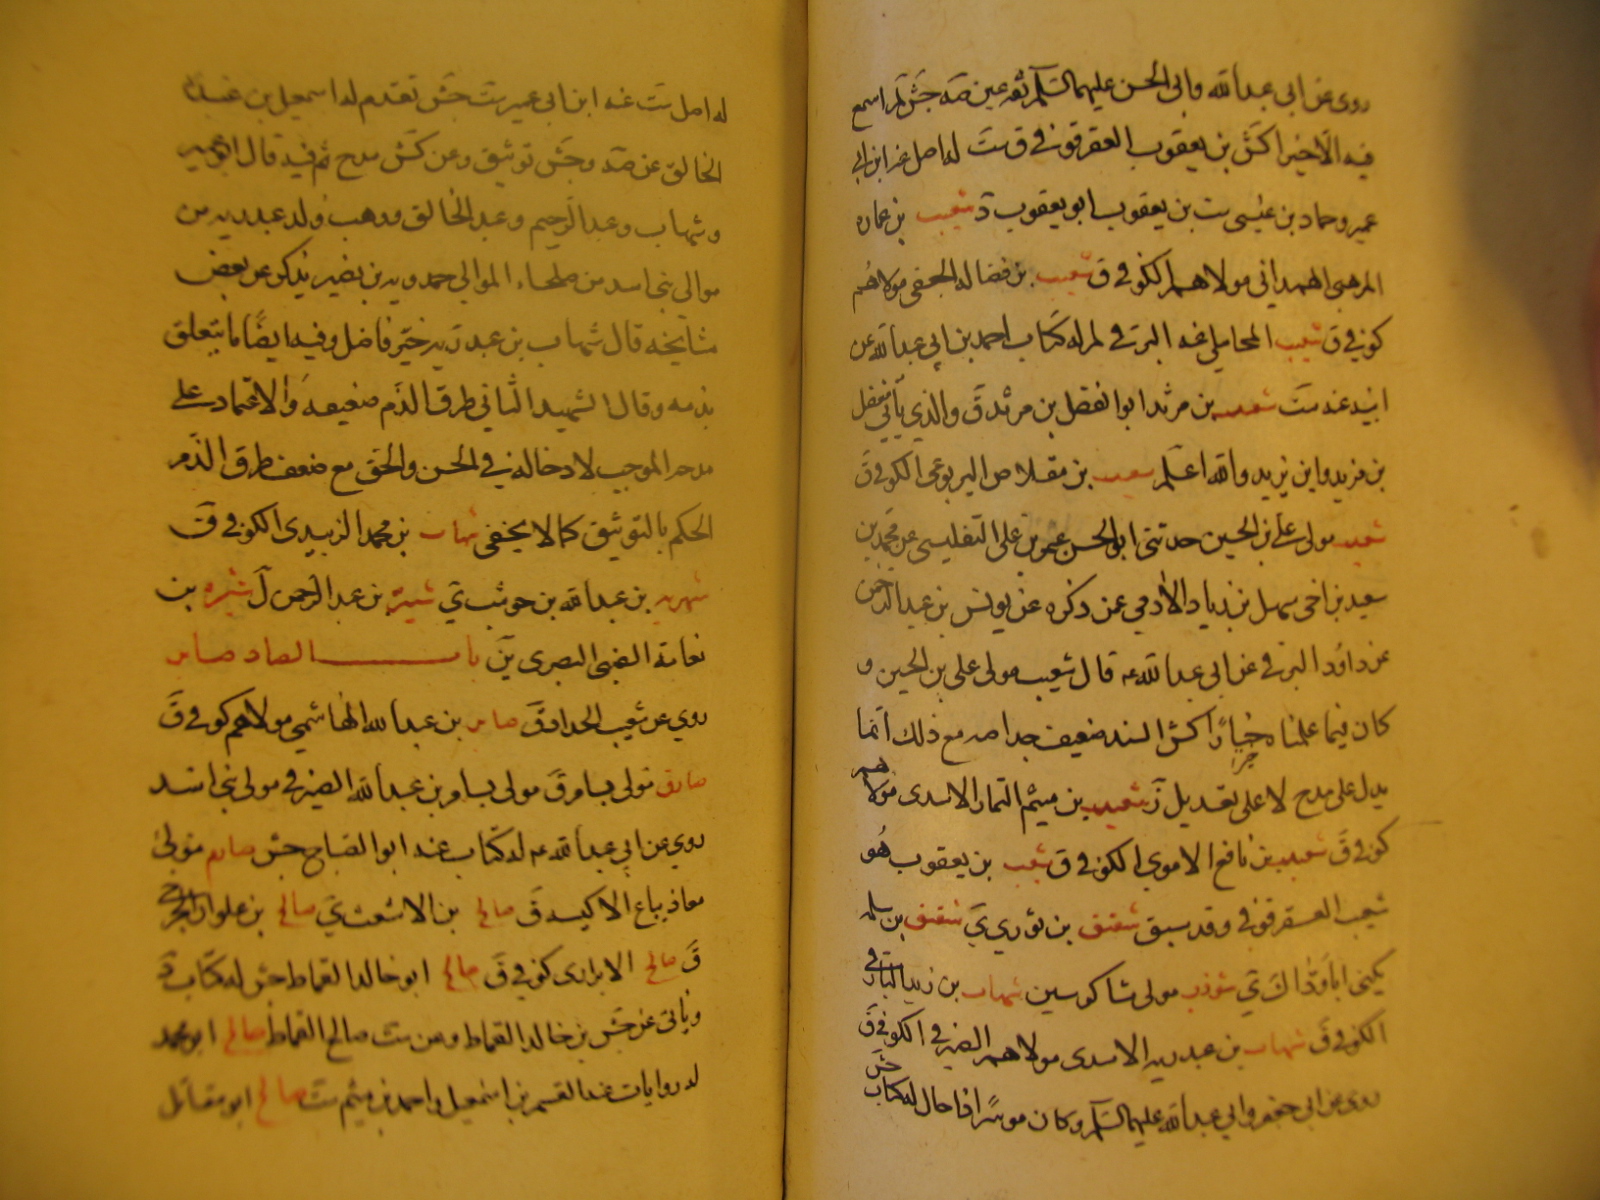 روى عن ابى عبد الله وابى الحسن عليهما السلم ثقة عين صه جش لم اسمع
فيه الا خيرا كش بن يعقوب العقرقوفى ق ست له اصل عن ابن ابى
عمير وحماد بن عيسى ست بن يعقوب ابو يعقوب د شعيب بن عماره
المرهبى الهمدانى مولاهم الكوفى ق شعيب بن فضاله الجعفى مولاهم
كوفى ق شعيب المحاملى عنه البرقى لم له كتاب احمد بن ابى عبد الله عن
ابيه عنه ست شعيب بن مرثد ابو الفضل بن مرثد ق والذى يأتى مفضل
بن مزيد وابن يزيد والله اعلم شعيب بن مقلاص اليربوعى الكوفى ق
شعيب مولى على بن الحسين حدثنى ابو الحسن عمر بن على التفليسى عن محمد بن
سعيد بن اخى سهل بن زياد الادمى عمن ذكره عن يونس بن عبد الرحمن
عن داود البرقى عن ابى عبد الله عه قال شعيب مولى على بن الحسين و
كان فيما علمناه خيارا كش السند ضعيف جدا صه مع ذلك انما
يدل على مدح لا على تعديل ز شعيب بن ميثم التمار الاسدى مولاهم
كوفى ق شعيب بن نافع الاموى الكوفى ق شعيب بن يعقوب هو
شعيب العقرقوفى وقد سبق شقيق بن ثور ى ى شقيق بن سلمه
يكنى ابا وداك ى شوذب مولى شاكر سين شهاب بن زيد البارقى
الكوفى ق شهاب بن عبد ربه الاسدى مولاهم الصيرفى الكوفى ق
روى عن ابى جعفر وابى عبد الله عليهما السلم وكان موسرا ذا حال له كتاب جش
له اصل ست عنه ابن ابى عمير ست جش تقدم له اسمعيل بن عبد
الخالق عن صه وجش توثيق وعن كش مدح ثم فيه قال ابو عمير
وشهاب وعبد الرحيم وعبد الخالق ووهب ولد عبد ربه من
موالى بنى اسد من صلحاء الموالى حمدويه بن نصير يذكر عن بعض
مشايخه قال شهاب بن عبد ربه خير فاضل وفيه ايضا ما يتعلق
بذمه وقال الشهيد الثانى طرق الذم ضعيفه والاعتماد على
مدحه الموجب لادخاله فى الحسن والحق مع ضعف طرق الذم
الحكم بالتوثيق كما لا يخفى شهاب بن محمد الزبيدى الكوفى ق
شهر بن عبد الله بن حوشب ى شيبة بن عبد الرحمن ل شيبره بن
نعامة الضبى البصرى ين باب الصاد صابر
روى عن شعيب الحداد ق صابر بن عبد الله الهاشمى مولاهم كوفى ق
صابر مولى بسام ق مولى بسام بن عبد الله الصيرفى مولى بنى اسد
روى عن ابى عبد الله عه له كتاب عنه ابو الصباح جش صابر مولى
معاذ بياع الاكيسة ق صالح بن الاشعث ى صالح بن علوان
ق صالح الابزارى كوفى ق صالح ابو خالد القماط جش له كتاب د
ويأتى عن جش بن خالد القماط وعن ست صالح القماط صالح ابو محمد
له روايات عنه القسم بن اسمعيل واحمد بن ميثم ست صالح ابو مقاتل